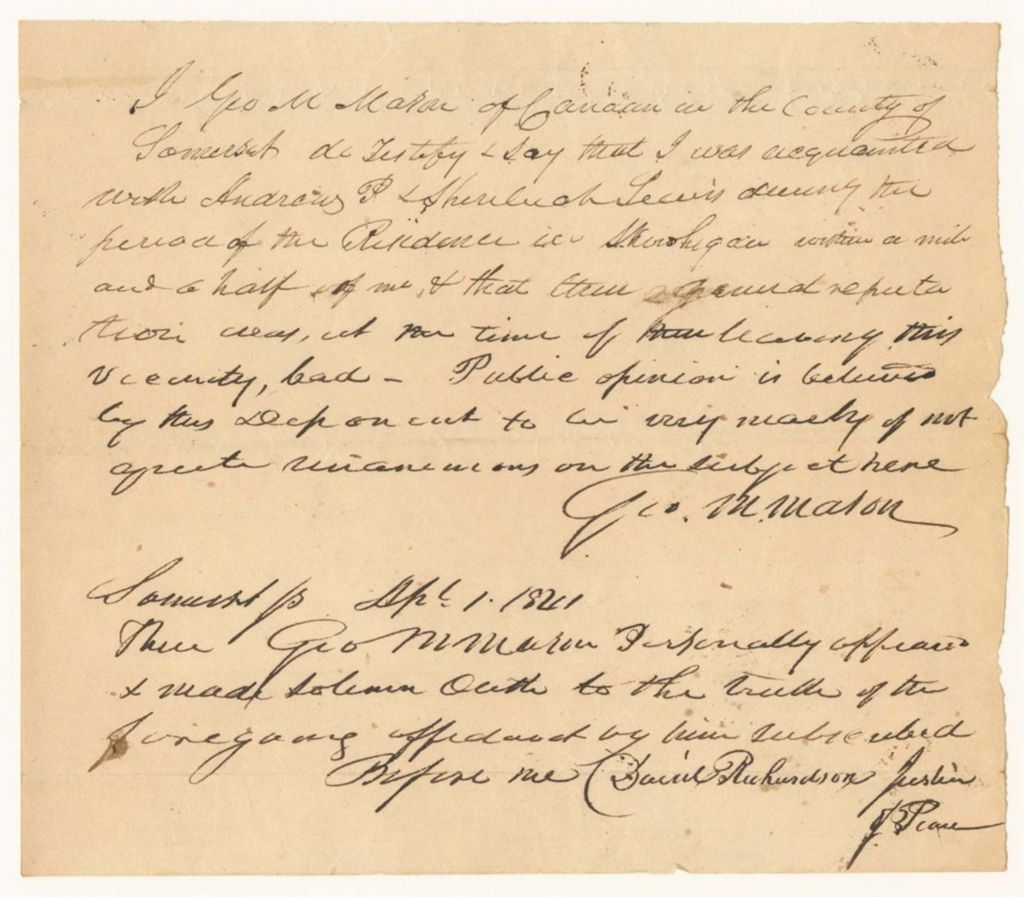 I Geo M Mason of Canaan in the County of
Somerset do Testify & Say that I was acquainted
with Andrew P & Lewis during the
period of the Residence in Skowhegan within a mile
and a half of me, & that their general reputa
tion was, at the time of their leaving this
Vicinity, bad - Public opinion is believed
by this Deponent to be very nearly if not
quite unanimous on the subject here
Geo. M. Mason
Somerset ss Sept. 1. 1841
Then Geo M Mason Personally appeared
& made solemn Oath to the truth of the
foregoing affidavit by him subscribed
Before me David Richardson Justice
of Peace